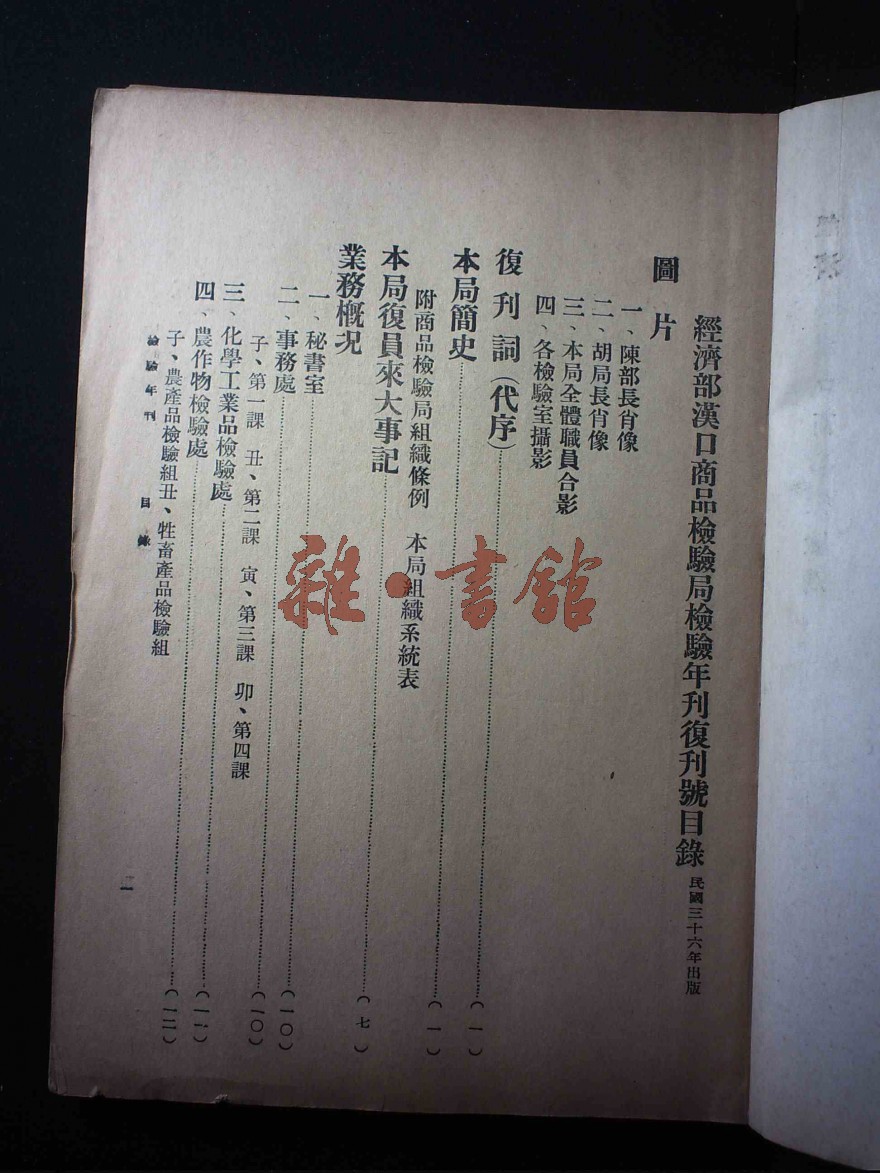 經濟部漢口商品檢驗局檢驗年刊復刊號目錄 民國三十六年出版
圖片
一、陳部長肖像
二、胡局長肖像
三、本局全體職員合影
四、各檢驗室攝影
復刊詞（代序）……（一）
本局簡史……（一）
附商品檢驗局組織條例 本局組織系統表
本局復員來大事記……（七）
業務概况
一、秘書室……（一〇）
二、事務處……（一〇）
子、第一課 丑、第二課 寅、第三課 卯、第四課
三、化學工業品檢驗處……（一一）
四、農作物檢驗處……（一二）
子、農產品檢驗組丑、牲畜產品檢驗組
檢驗年刊 目錄
雜·書館